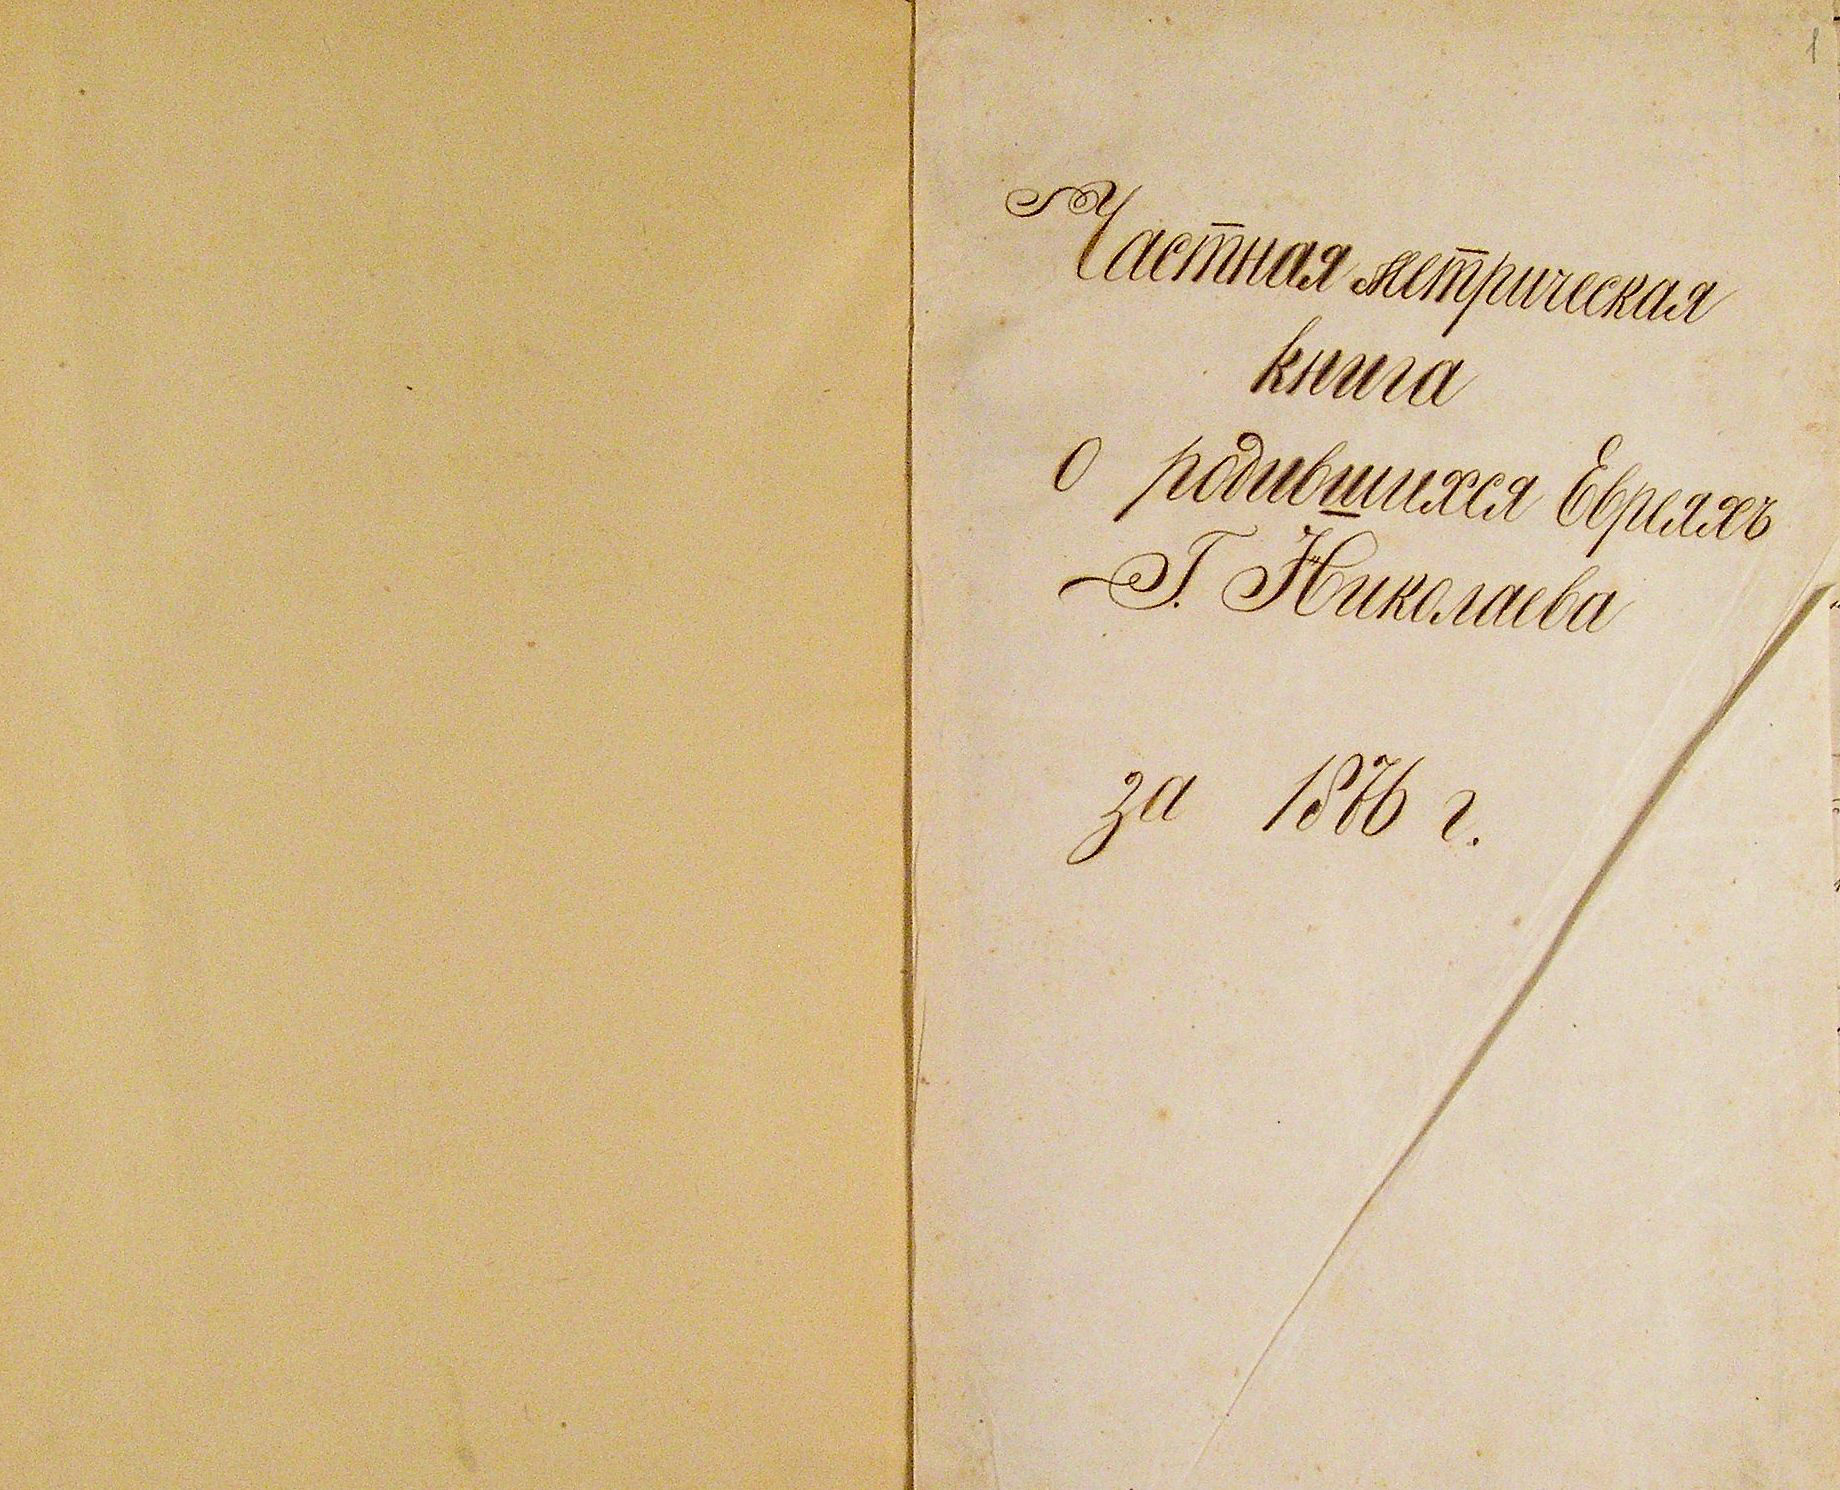 1
Частная метрическая
книга
о родившихся Евреяхъ
Г. Николаева
за 1876 г.